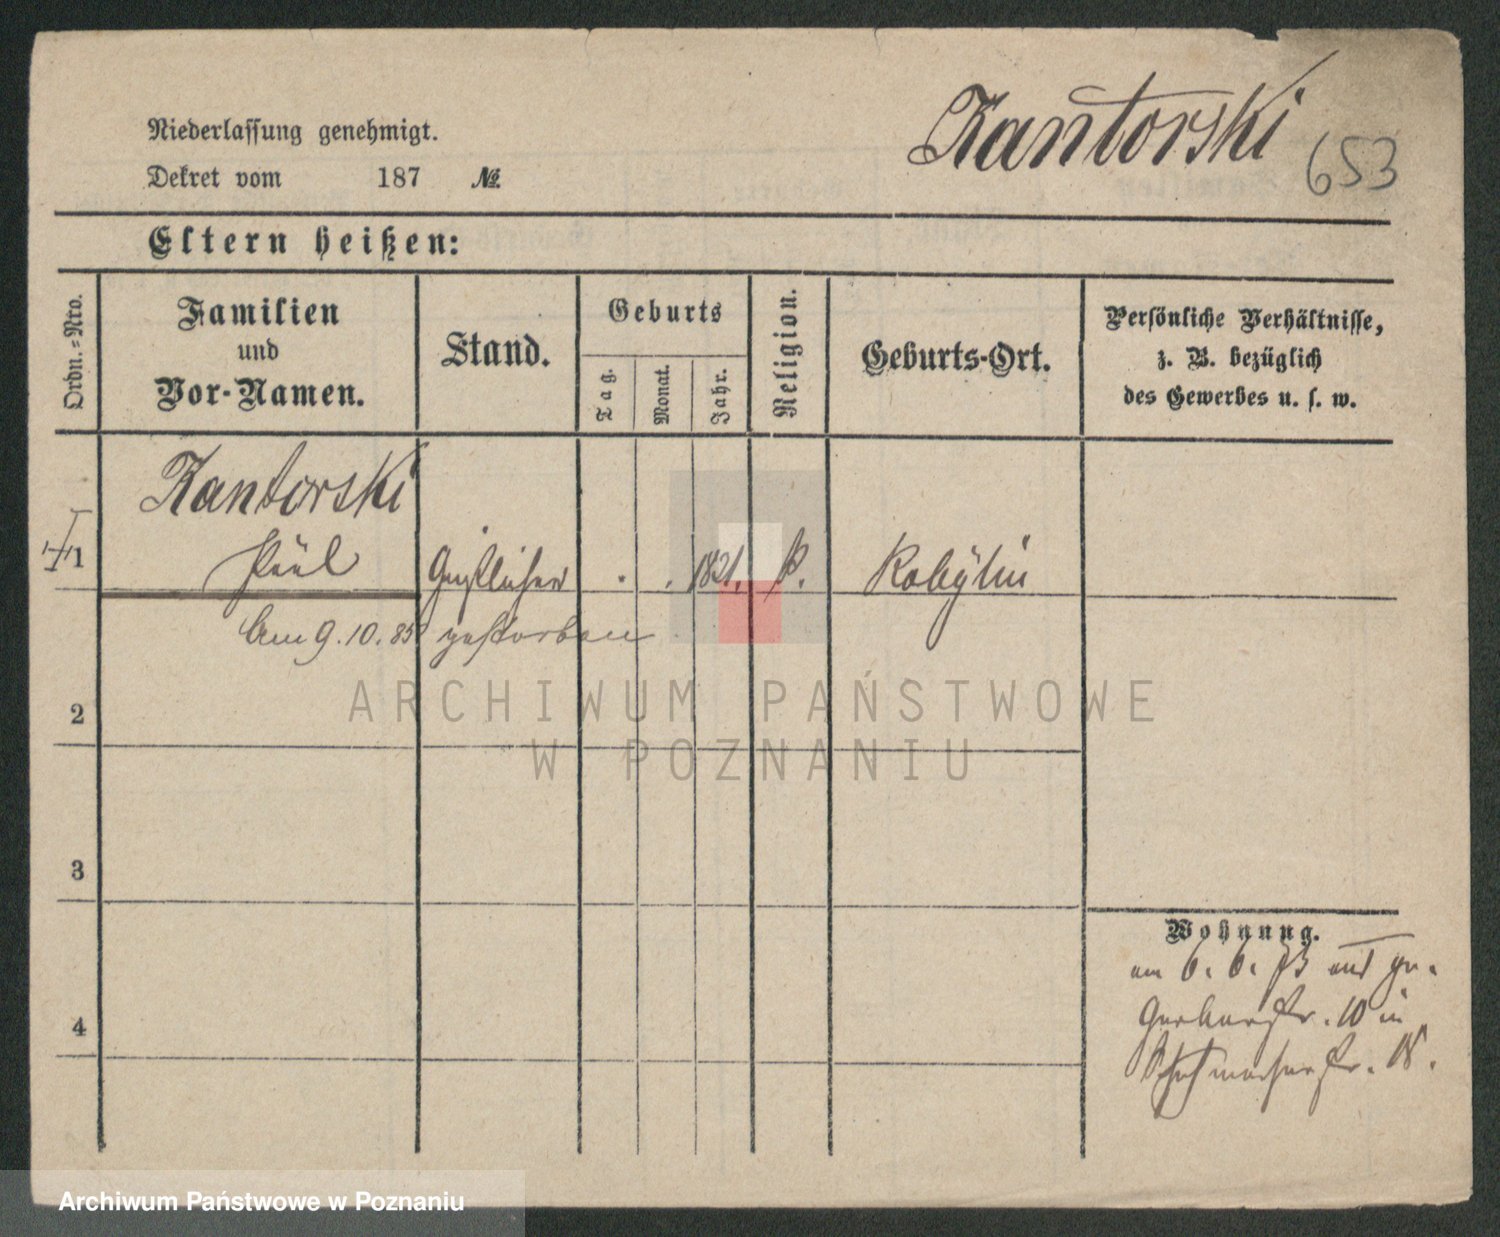 Kantorski
653
Niederlassung genehmigt.
Dekret vom 187 №
Eltern heißen:
Ordn.-Nro.
Familien
und
Vor-Namen.
Stand.
Geburts
Tag.
Monat.
Jahr.
Religion.
Geburts-Ort.
Persönliche Verhältnisse,
z. B. bezüglich
des Gewerbes u. s. w.
Kantorski
1 Paul Geistlicher . . 1821. k. Kobylin
Am 9.10.85 gestorben
2
3
4
Wohnung.
am 6. 6. 73
Gerberstr. 10 in
Schuhmacherstr.
ARCHIWUM PAŃSTWOWE
W POZNANIU
Archiwum Państwowe w Poznaniu